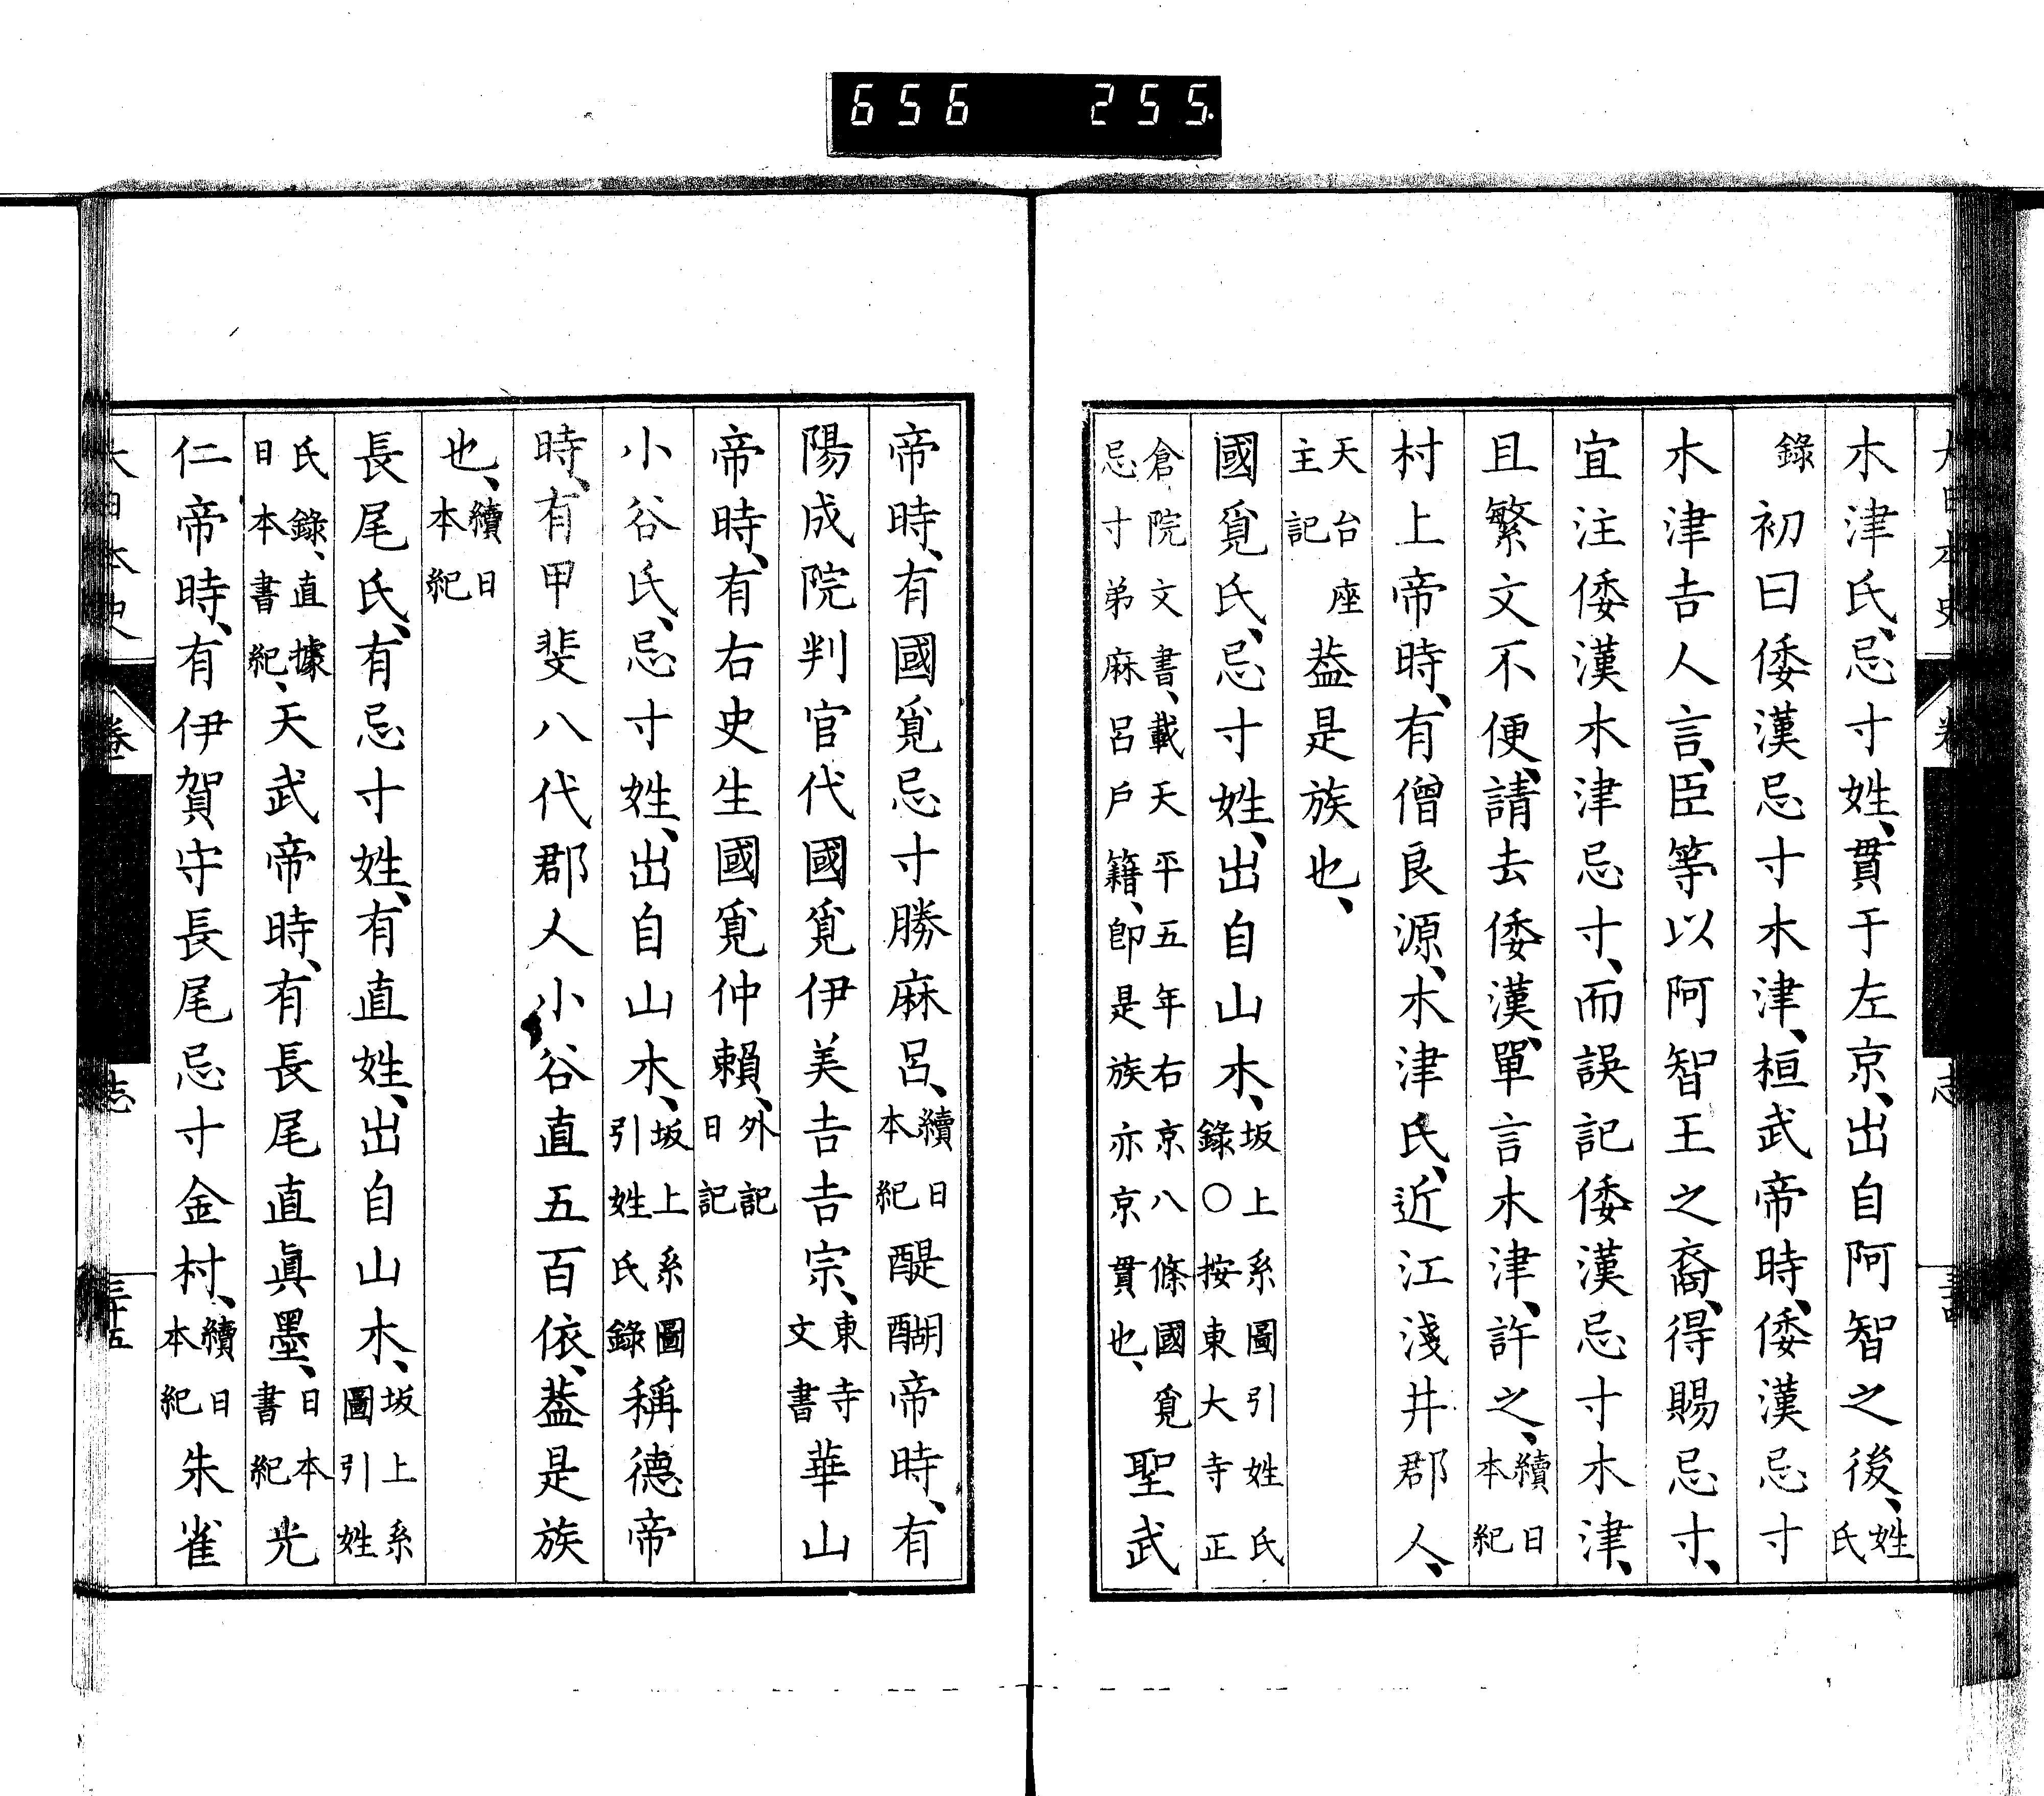 656 255
木津氏、忌寸姓、貫于左京、出自阿智之後、姓氏
錄 初曰倭漢忌寸木津、桓武帝時、倭漢忌寸
木津吉人言、臣等以阿智王之裔、得賜忌寸、
宜注倭漢木津忌寸、而誤記倭漢忌寸木津、
且繁文不便、請去倭漢、單言木津、許之、續日本紀
村上帝時、有僧良源、木津氏、近江淺井郡人、
天台座主記 葢是族也、
國覓氏、忌寸姓、出自山木、坂上系圖引姓氏錄○按東大寺正
倉院文書、載天平五年右京八條國覓忌寸弟麻呂戶籍、卽是族亦京貫也、 聖武
帝時、有國覓忌寸勝麻呂、續日本紀 醍醐帝時、有
陽成院判官代國覓伊美吉吉宗、東寺文書 華山
帝時、有右史生國覓仲賴、外記日記
小谷氏、忌寸姓、出自山木、坂上系圖引姓氏錄 稱德帝
時、有甲斐八代郡人小谷直五百依、葢是族
也、續日本紀
長尾氏、有忌寸姓、有直姓、出自山木、坂上系圖引姓
氏錄、直據日本書紀、天武帝時、有長尾直眞墨、日本書紀 光
仁帝時、有伊賀守長尾忌寸金村、續日本紀 朱雀
大日本史 卷 志 三十五